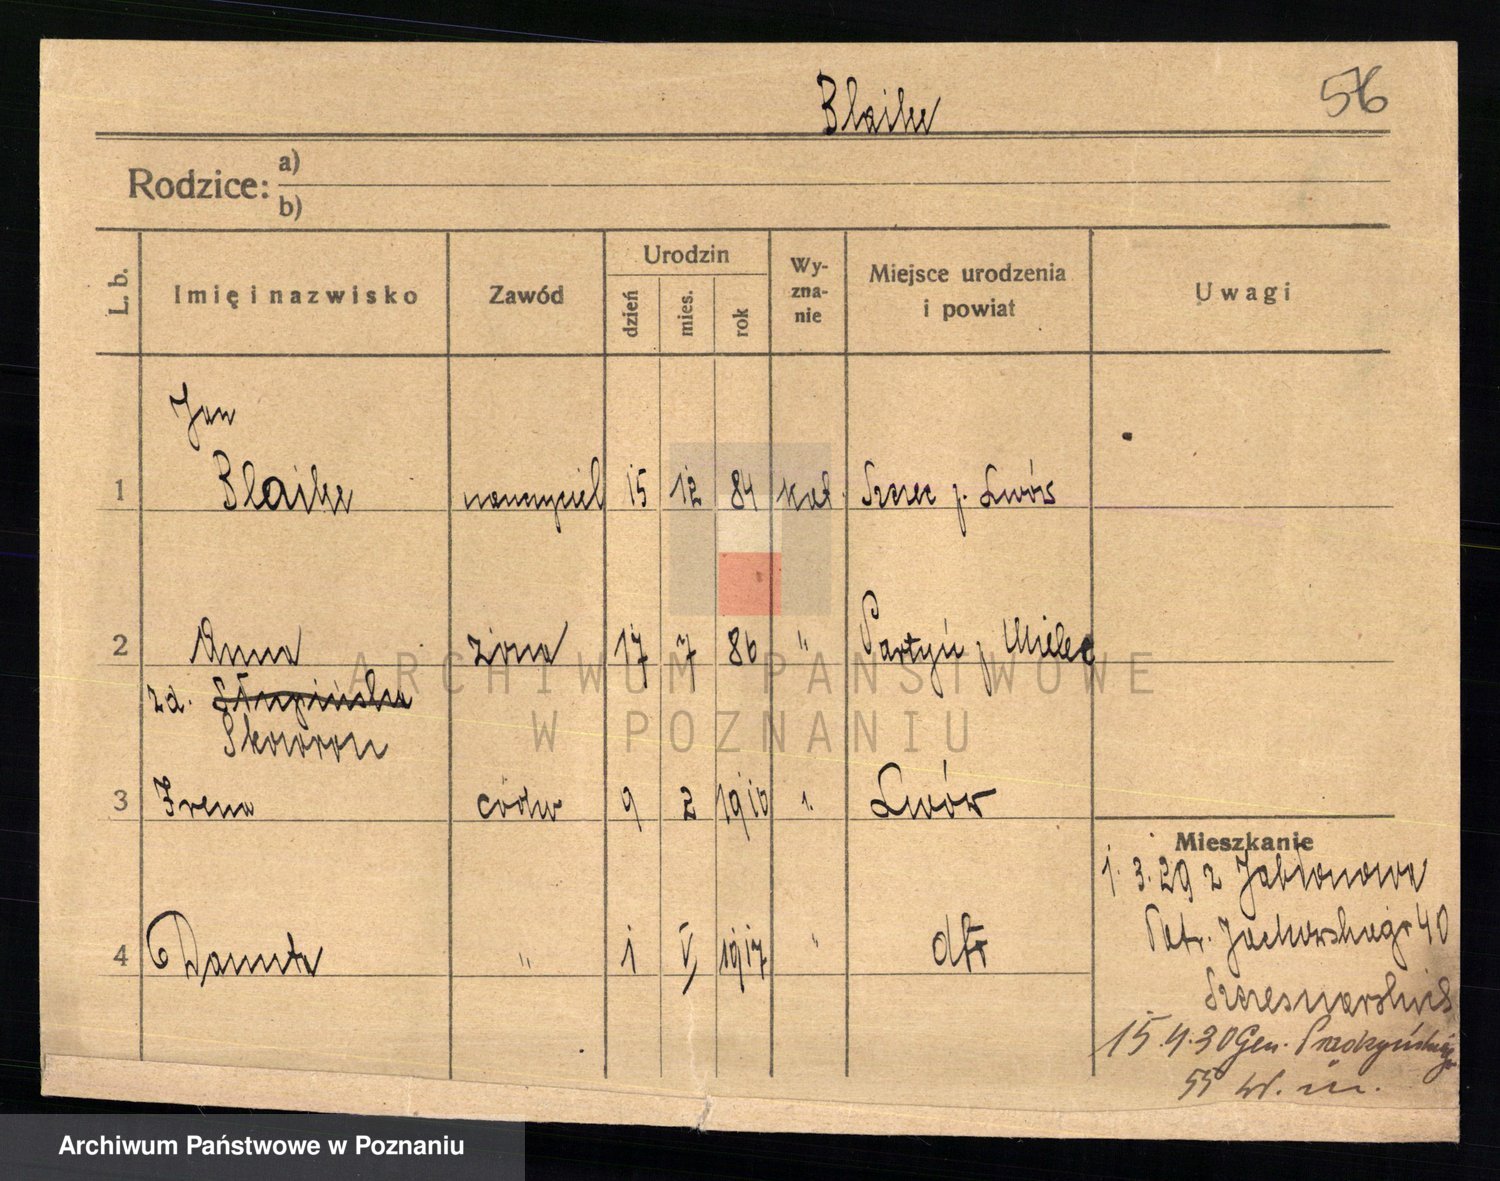 56
Blaike
Rodzice: a)
b)
L. b.
Imię i nazwisko
Zawód
Urodzin
dzień
mies.
rok
Wy-
zna-
nie
Miejsce urodzenia
i powiat
Uwagi
Jan
1 Blaike nauczyciel 15 12 84 kat. p. Lwów
2 Anna żona 17 7 86 " Partyń p. Mielec
zd.
Skowron
3 Irena córka 9 2 1910 Lwów
4 Danuta " 1 V 1917 " dtr
Mieszkanie
1. 3. 29 z Jabłonowa
Patr. Jackowskiego 40
15.4.30 Gen. Prądzyńskiego
55 W. m.
ARCHIWUM PAŃSTWOWE
W POZNANIU
Archiwum Państwowe w Poznaniu